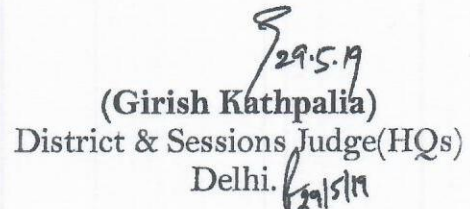 29.5.19
(Girish Kathpalia)
District & Sessions Judge(HQs)
Delhi.
29/5/19